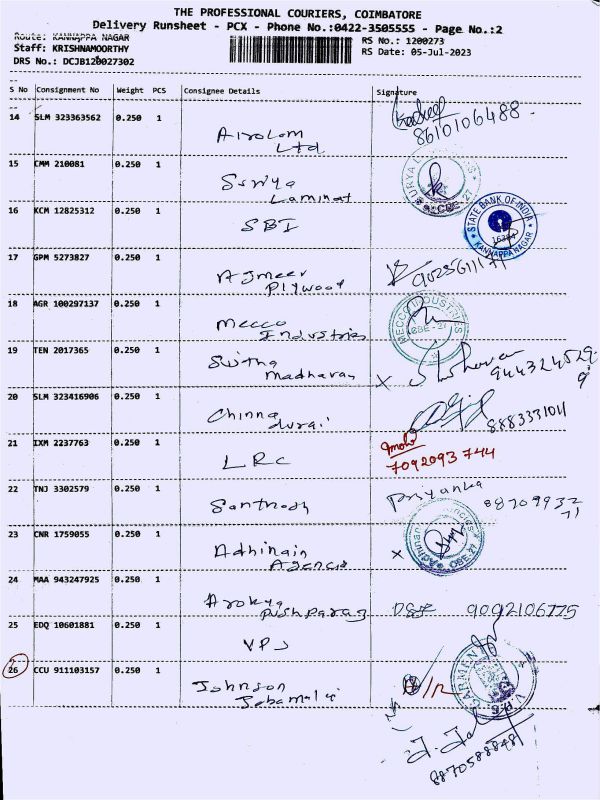 THE PROFESSIONAL COURIERS, COIMBATORE
Delivery Runsheet - PCX - Phone No.:0422-3505555 - Page No.:2
Route: KANNAPPA NAGAR
RS No.: 1200273
Staff: KRISHNAMOORTHY
RS Date: 05-Jul-2023
DRS No.: DCJB120027302
S No Consignment No Weight PCS Consignee Details Signature
14 SLM 323363562 0.250 1
Airolam
Ltd
8610106488
15 CMM 210081 0.250 1
Surya
Laminat
CBE-27
16 KCM 12825312 0.250 1
SBI
STATE BANK OF INDIA
KANNAPPA NAGAR
17 GPM 5273827 0.250 1
Ajmeer
Plywood
18 AGR 100297137 0.250 1
Mecco
Industries
MECCO INDUSTRIES
CBE-27
19 TEN 2017365 0.250 1
Madharan
X
9443245299
20 SLM 323416906 0.250 1
Chinna
durai
8883331011
21 IXM 2237763 0.250 1
LRC
7092093744
22 TNJ 3302579 0.250 1
Santhosh
Priyanka
23 CNR 1759055 0.250 1
Adhinain
Agencis
X
CBE-27
24 MAA 943247925 0.250 1
Arokya
Pushparaj
9092106775
25 EDQ 10601881 0.250 1
VPS
26 CCU 911103157 0.250 1
Johnson
Jebamalai
8870588848